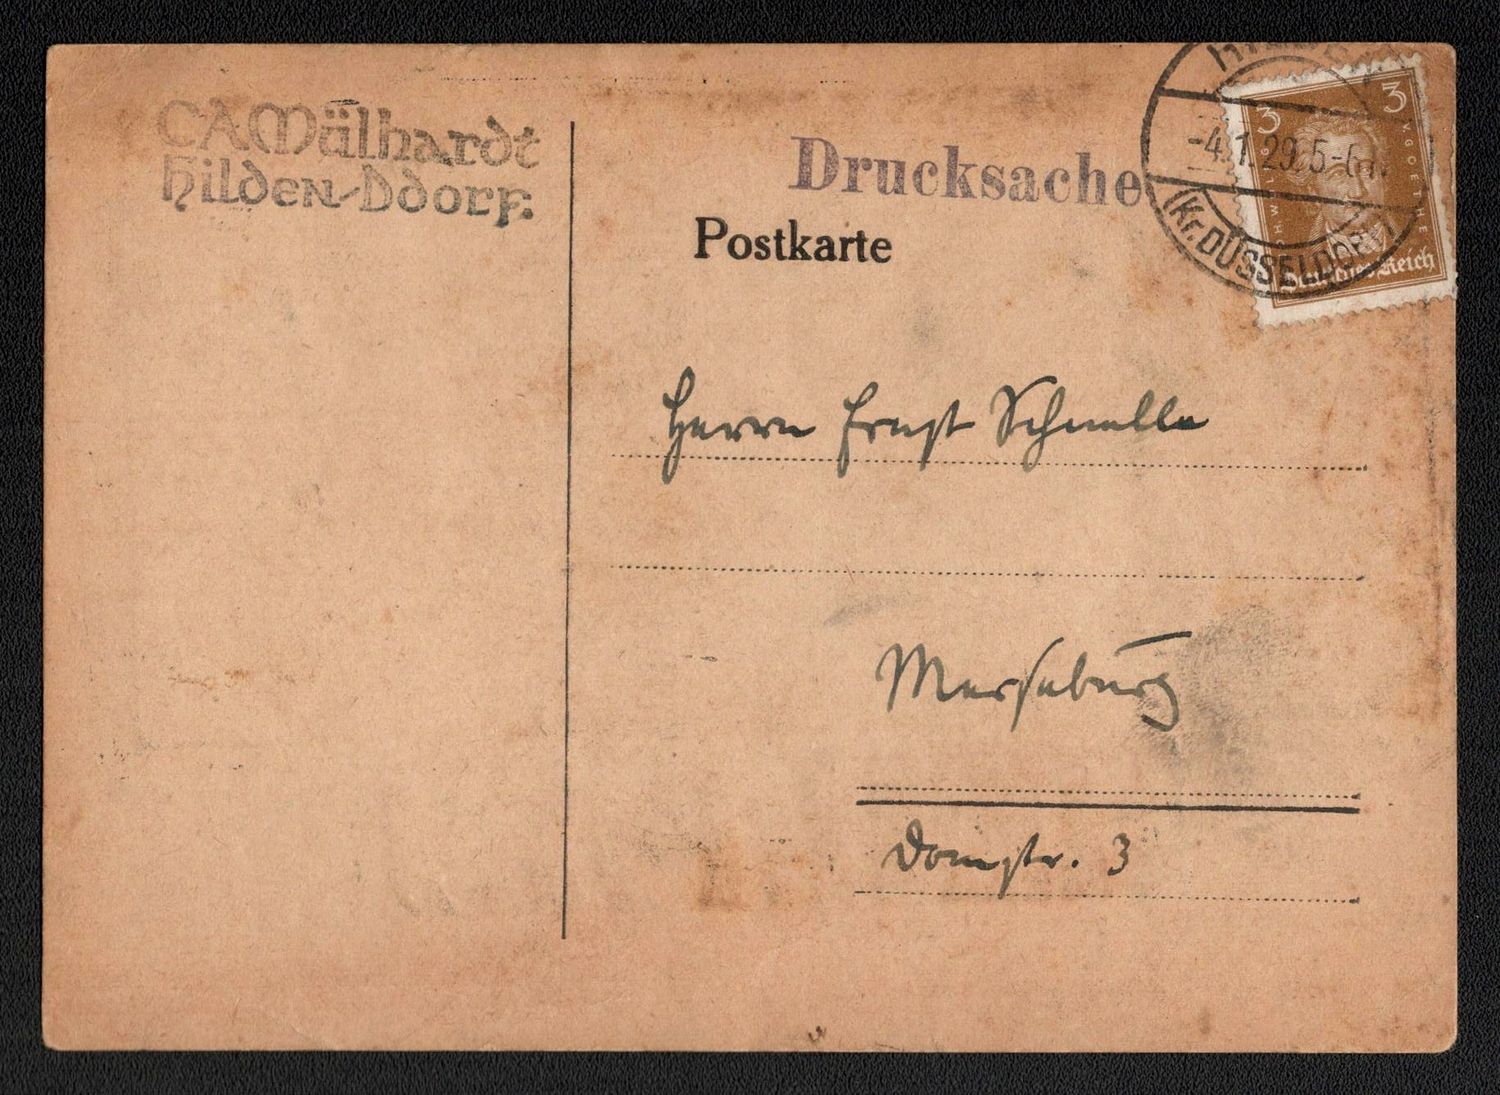 CAMülhardt
Hilden-Ddorf.
Drucksache
Postkarte
-4.1.29.5-6
(Kr. DÜSSELDORF)
3
3
J.W.V.GOETHE
Deutsches Reich
Herrn Ernst Schnelle
Merseburg
Domstr. 3